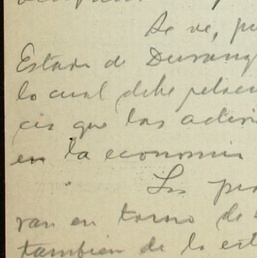 Se ve, p
Estado de Durang
lo cual debe relac
cia que las activi
en la economia
Los pro
ran en torno de
tambien de la est